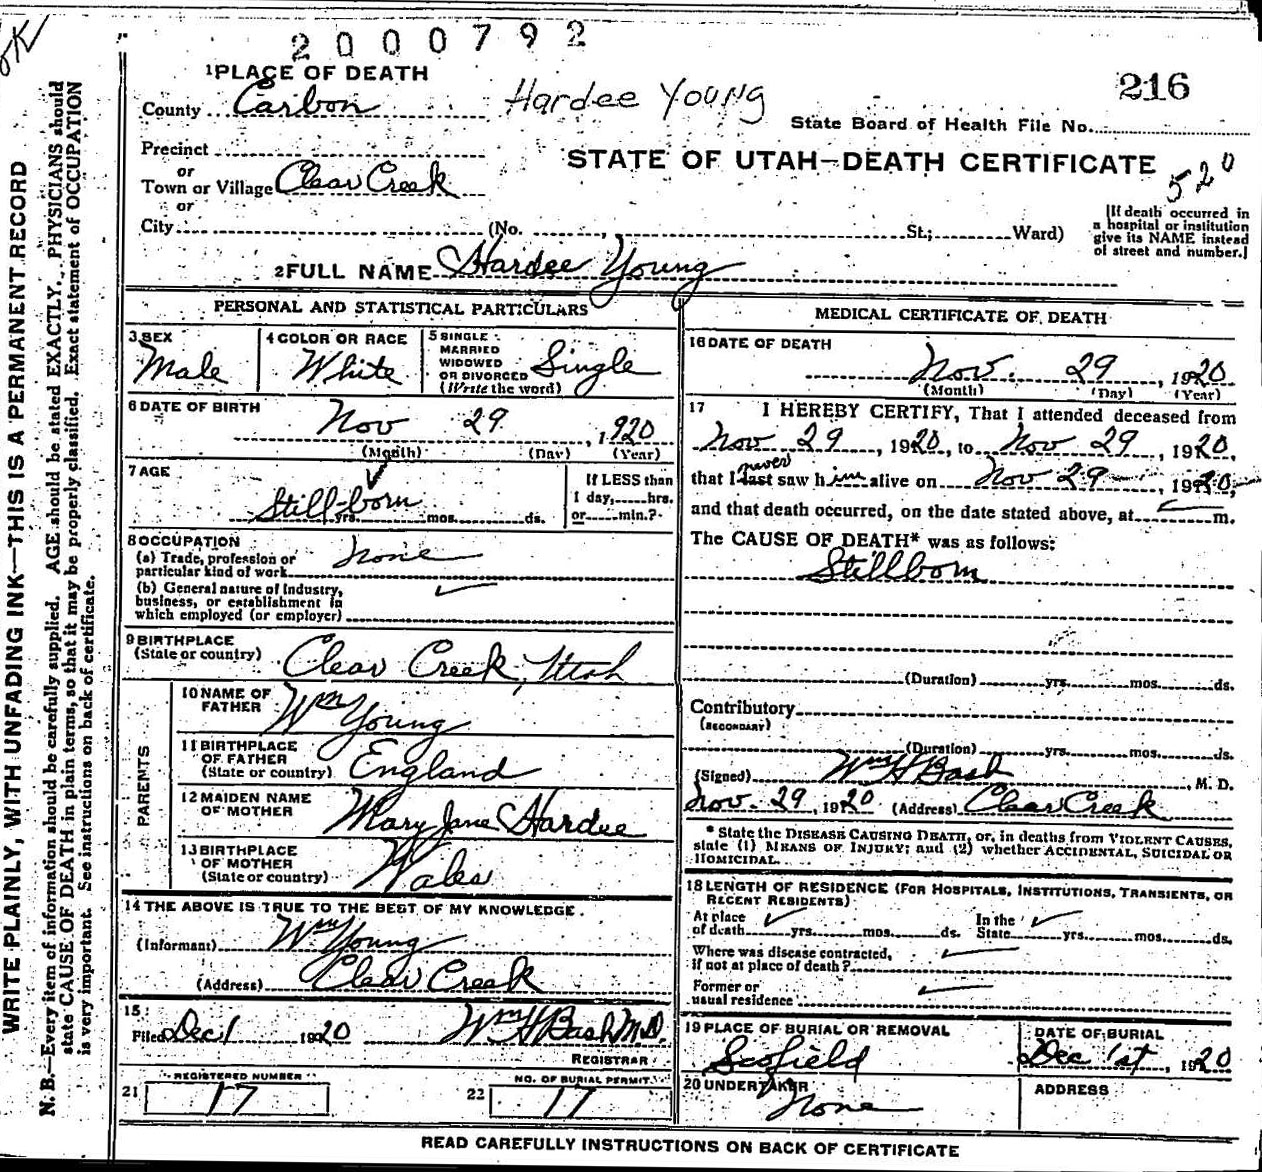 OK
2000792
1 PLACE OF DEATH
Hardee Young
216
County Carbon
State Board of Health File No.
Precinct
STATE OF UTAH—DEATH CERTIFICATE
or
Town or Village Clear Creek
520
or
City (No. St.; Ward)
[If death occurred in
a hospital or institution
give its NAME instead
of street and number.]
2 FULL NAME Hardee Young
PERSONAL AND STATISTICAL PARTICULARS
3 SEX
Male
4 COLOR OR RACE
White
5 SINGLE
MARRIED
WIDOWED
OR DIVORCED
(Write the word)
Single
6 DATE OF BIRTH
Nov 29, 1920
(Month) (Day) (Year)
7 AGE
Still-born
yrs. mos. ds.
If LESS than
1 day, hrs.
or min.?
8 OCCUPATION
(a) Trade, profession or
particular kind of work
None
(b) General nature of Industry,
business, or establishment in
which employed (or employer)
9 BIRTHPLACE
(State or country)
Clear Creek, Utah
PARENTS
10 NAME OF
FATHER
Wm Young
11 BIRTHPLACE
OF FATHER
(State or country)
England
12 MAIDEN NAME
OF MOTHER
Mary Jane Hardee
13 BIRTHPLACE
OF MOTHER
(State or country)
Wales
14 THE ABOVE IS TRUE TO THE BEST OF MY KNOWLEDGE.
(Informant) Wm Young
(Address) Clear Creek
15
Filed Dec 1 1920 Wm H Bash M.D.
REGISTRAR
21
REGISTERED NUMBER
17
22
NO. OF BURIAL PERMIT
17
MEDICAL CERTIFICATE OF DEATH
16 DATE OF DEATH
Nov. 29, 1920
(Month) (Day) (Year)
17 I HEREBY CERTIFY, That I attended deceased from
Nov 29, 1920, to Nov 29, 1920,
never
that I last saw h im alive on Nov 29, 1920,
and that death occurred, on the date stated above, at m.
The CAUSE OF DEATH* was as follows:
Stillborn
(Duration) yrs. mos. ds.
Contributory
(SECONDARY)
(Duration) yrs. mos. ds.
(Signed) Wm H Bash, M. D.
Nov. 29, 1920 (Address) Clear Creek
* State the DISEASE CAUSING DEATH, or, in deaths from VIOLENT CAUSES,
state (1) MEANS OF INJURY; and (2) whether ACCIDENTAL, SUICIDAL OR
HOMICIDAL.
18 LENGTH OF RESIDENCE (FOR HOSPITALS, INSTITUTIONS, TRANSIENTS, OR
RECENT RESIDENTS)
At place
of death yrs. mos. ds.
In the
State yrs. mos. ds.
Where was disease contracted,
if not at place of death?
Former or
usual residence
19 PLACE OF BURIAL OR REMOVAL
Scofield
DATE OF BURIAL
Dec 1st, 1920
20 UNDERTAKER
None
ADDRESS
READ CAREFULLY INSTRUCTIONS ON BACK OF CERTIFICATE
WRITE PLAINLY, WITH UNFADING INK—THIS IS A PERMANENT RECORD
N. B.—Every item of information should be carefully supplied. AGE should be stated EXACTLY. PHYSICIANS should
state CAUSE OF DEATH in plain terms, so that it may be properly classified. Exact statement of OCCUPATION
is very important. See instructions on back of certificate.